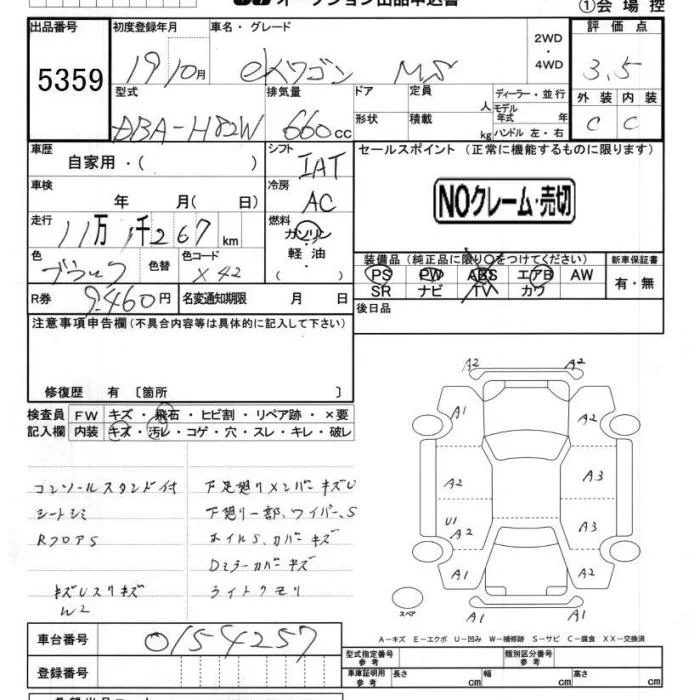 オークション出品申込書
①会場控
出品番号 5359
初度登録年月 19/10月
車名・グレード eKワゴン MS
2WD・4WD
評価点 3.5
型式 DBA-H82W
排気量 660cc
ドア 形状
定員 人
積載 kg
ディーラー・並行
モデル年式 年
ハンドル 左・右
外装 C
内装 C
車歴 自家用・( )
シフト IAT
セールスポイント (正常に機能するものに限ります)
NOクレーム・売切
車検 年 月( 日)
冷房 AC
走行 11万1千267km
燃料 ガソリン・軽油・( )
色 ブラック
色替
色コード X42
装備品(純正品に限り○をつけてください)
新車保証書
PS PW ABS エアB AW
SR ナビ TV カワ
有・無
R券 9,460円
名変通知期限 月 日
後日品
注意事項申告欄(不具合内容等は具体的に記入して下さい)
修復歴 有 〔箇所 〕
検査員記入欄
FW キズ・飛石・ヒビ割・リペア跡・×要
内装 キズ・汚レ・コゲ・穴・スレ・キレ・破レ
コンソールスタンド付
シートシミ
RフロアS
キズUスリキズ
W2
下廻りメンバーキズU
下廻り一部、ワイパーS
ホイルS、カバーキズ
Dミラーカバーキズ
ライトクモリ
A2 A2
A1 A2
A2 A3
U1 A2 A3
A1 A2
A1 A1
スペア
A-キズ E-エクボ U-凹み W-補修跡 S-サビ C-腐食 XX-交換済
車台番号 0154257
登録番号
型式指定番号 参考
類別区分番号 参考
車庫証明用 参考 長さ cm 幅 cm 高さ cm